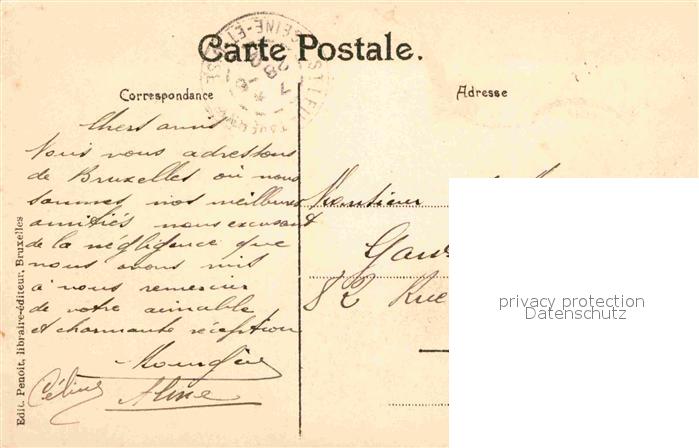 Carte Postale.
Correspondance
Adresse
Chers amis
Nous vous adressons
de Bruxelles où nous
sommes nos meilleures
amitiés nous excusant
de la négligence que
nous avons mis
à vous remercier
de votre aimable
et charmante réception
Céline
Aline
Monsieur
82 Rue
Edit. Penoit, libraire-éditeur, Bruxelles
privacy protection
Datenschutz